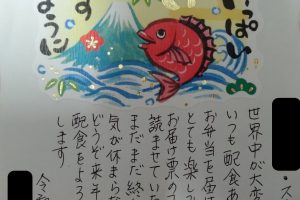 いっぱい
す
ように
・ス
世界中が大変
いつも配食あ
お弁当を届け
とても楽し
お届け票のコ
読ませていた
まだまだ終
気が休まらな
どうぞ来年
配食をよろ
します
令和